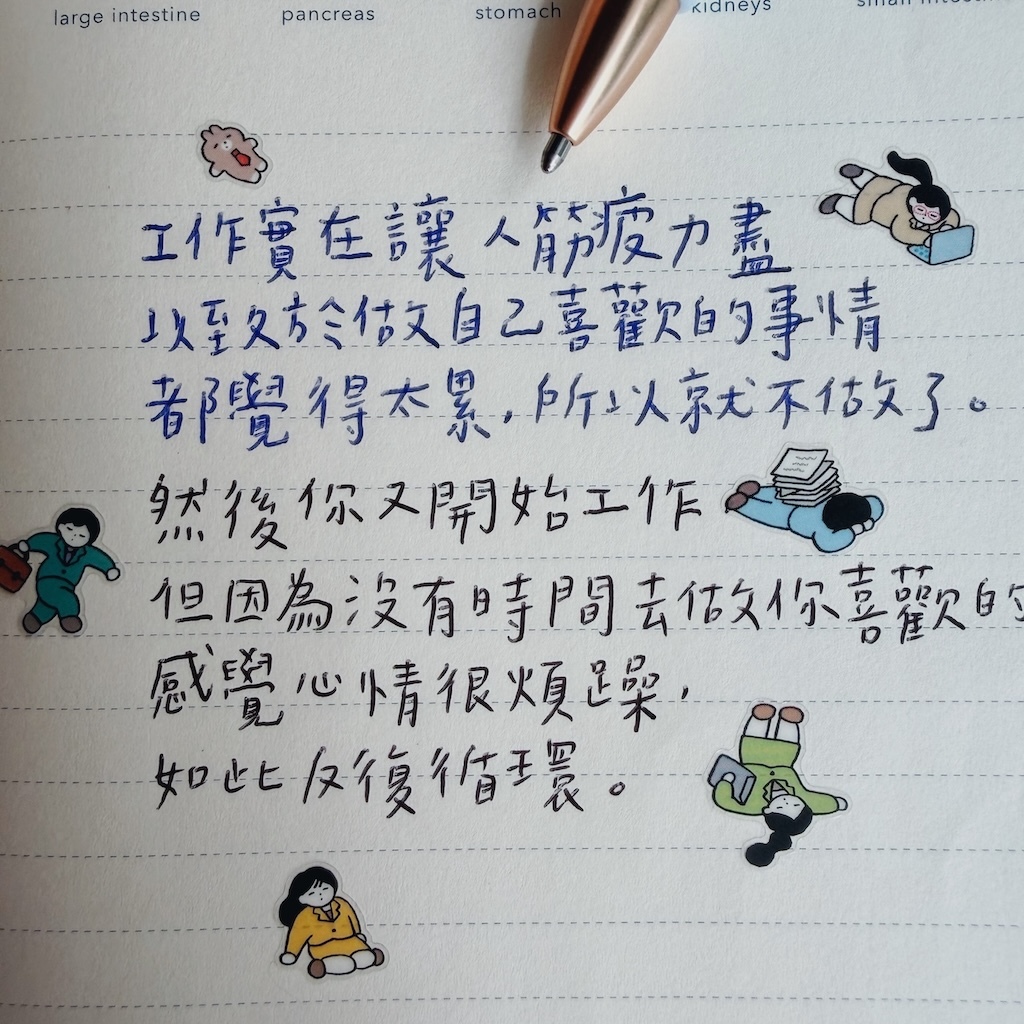 large intestine pancreas stomach kidneys small intest
工作實在讓人筋疲力盡
以至於於做自己喜歡的事情
都覺得太累,所以就不做了。
然後你又開始工作
但因為沒有時間去做你喜歡的
感覺心情很煩躁,
如此反復循環。